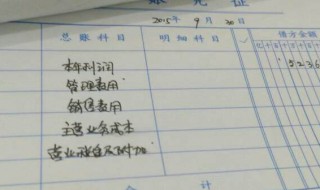 账凭证
2015 年 9 月 30 日
总账科目 明细科目 借方金额
亿 千 百 十
本年利润
管理费用
销售费用
主营业务成本
营业税金及附加
合 计